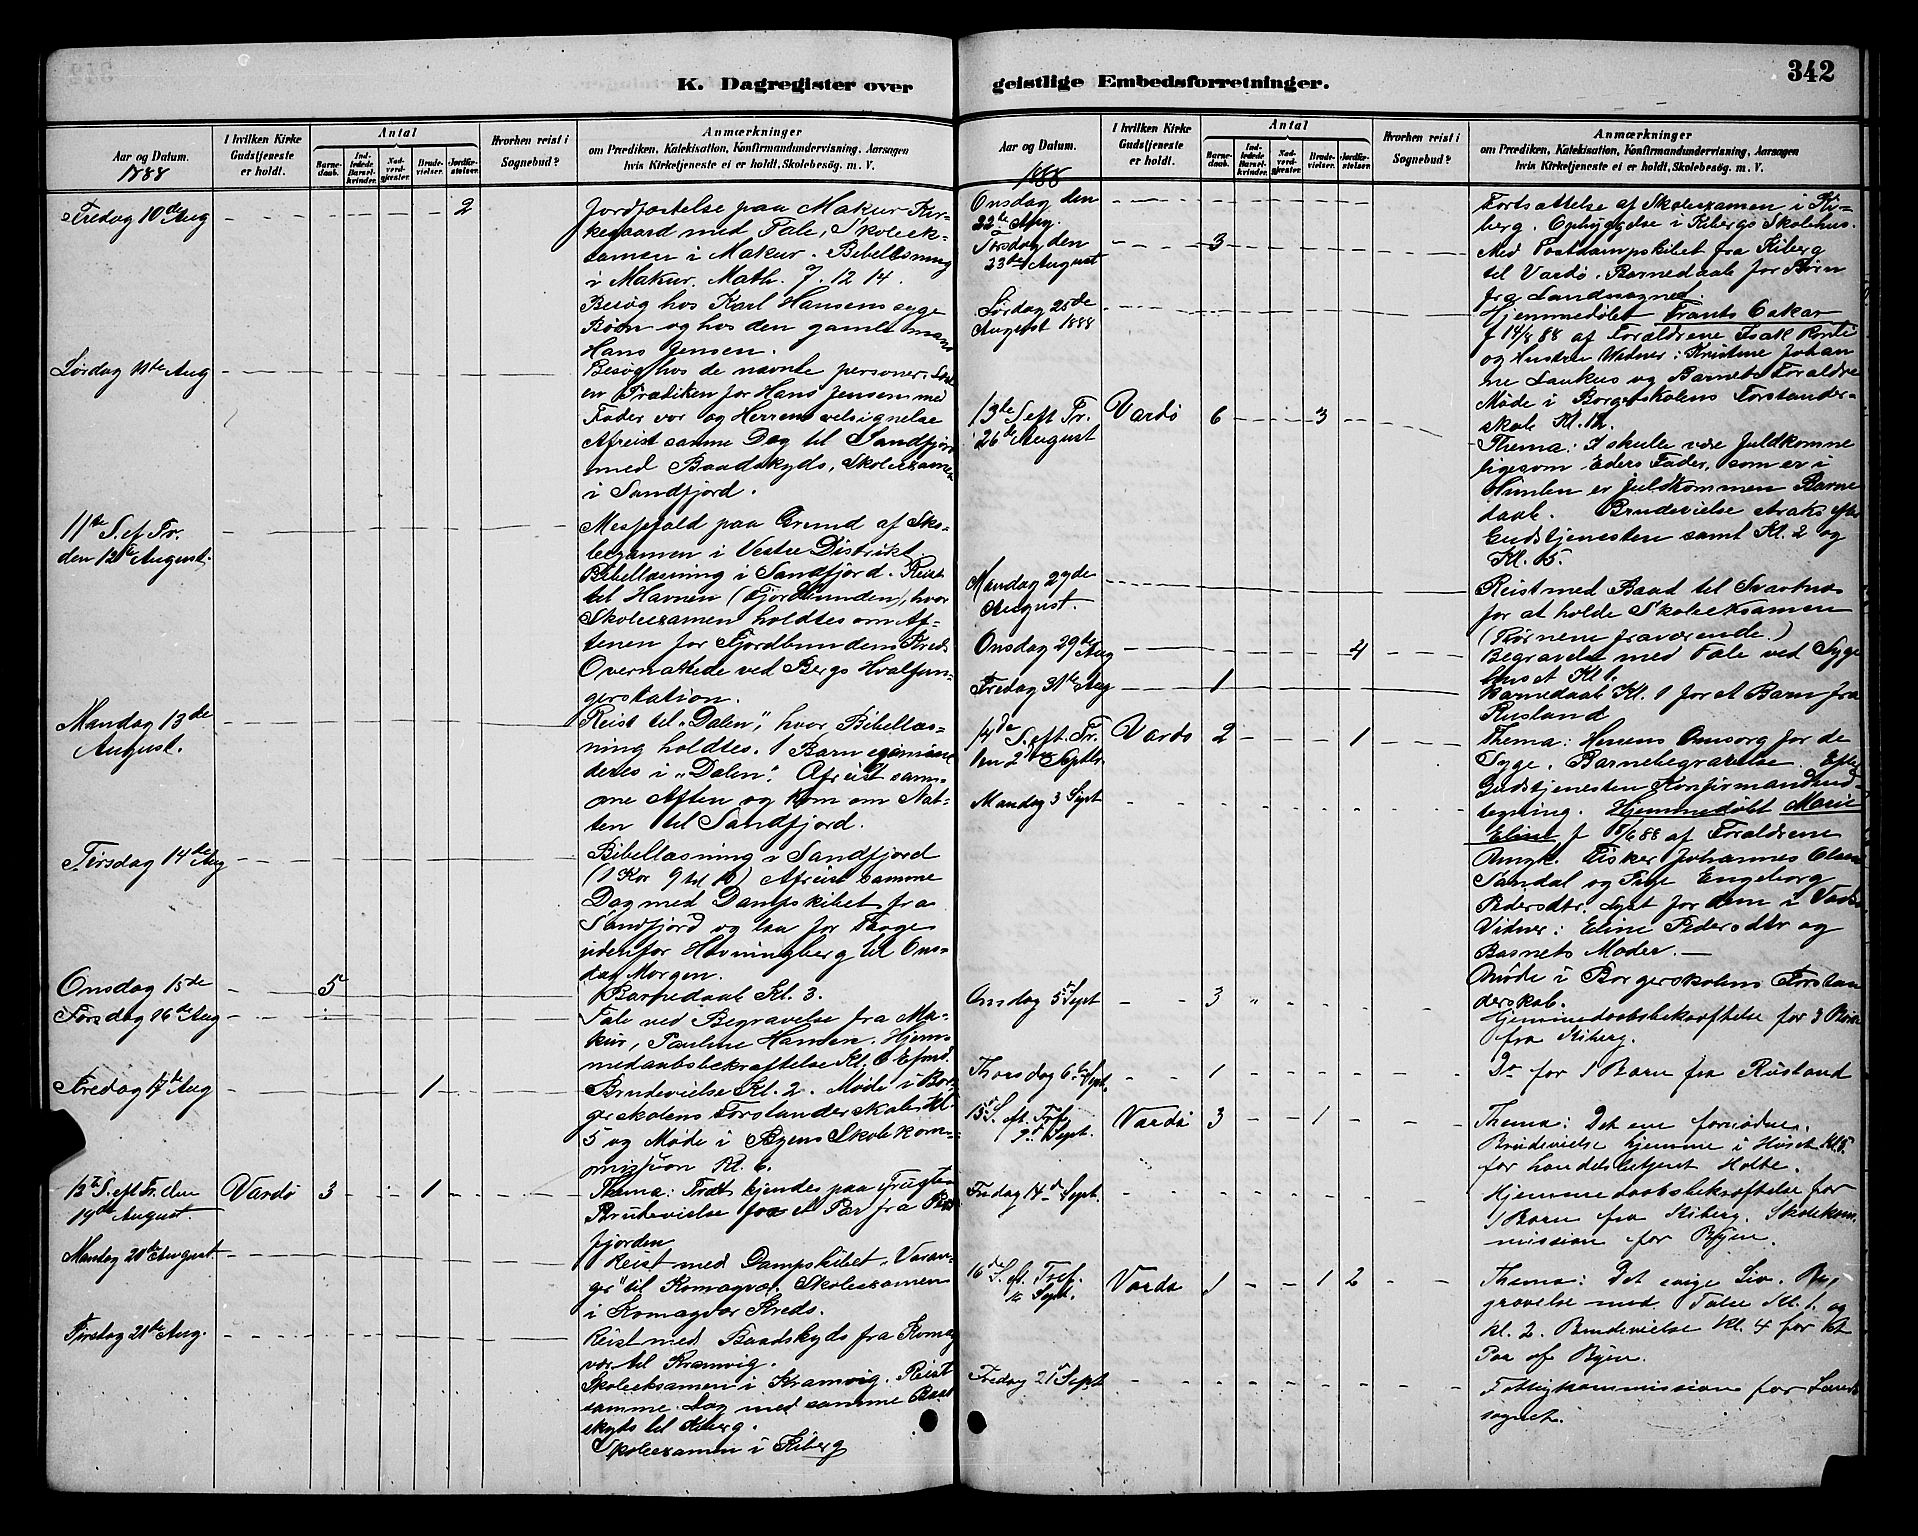 K. Dagregister over
Aar og Datum.
1888
I hvilken Kirke Gudstjeneste er holdt.
Antal
Barnedaab.
Indledede Barselkvinder.
Nadverdgjester.
Brudevielser.
Jordfæstelser.
Hvorhen reist i Sognebud?
Anmærkninger
om Prædiken, Katekisation, Konfirmandundervisning, Aarsagen
hvis Kirketjeneste ei er holdt, Skolebesøg. m. V.
Fredag 10de Aug
2
Jordfæstelse paa Makur Kir-
kegaard med Tale, Skoleek-
samen i Makur. Bibellæsning
i Makur. Math. 7. 12 14.
Besøg hos Karl Hansens syge
Børn og hos den gamle mand
Hans Jensen.
Lørdag 11te Aug
Besøg hos de nævnte personer.
en Prædiken for Hans Jensen med
Fader vor og Herrens velsignelse
Afreist samme Dag til Sandfjord
med Baadskyds, Skoleexamen
i Sandfjord.
11te S. ef Tr.
den 12te August.
Messefald paa Grund af Sko-
leexamen i Vestre Distrikt.
Bibellæsning i Sandfjord. Reist
til Havnen (Fjordbunden), hvor
Skoleexamen holdtes om Af-
tenen for Fjordbundens Kreds
Overnattede ved Bergs Hvalfan-
gerstation.
Mandag 13de
August.
Reist til "Dalen", hvor Bibellæs-
ning holdtes. 1 Barn examine-
deres i "Dalen". Afreist sam-
me Aften og kom om Nat-
ten til Sandfjord.
Tirsdag 14de Aug
Bibellæsning i Sandfjord
(1 Kor 9 til 10) Afreist samme
Dag med Dampskibet fra
Sandfjord og laa for Taage
udenfor Havningberg til Ons-
dag Morgen.
Onsdag 15de
5
Barnedaab Kl. 3.
Torsdag 16de Aug
Tale ved Begravelse fra Ma-
kur, Pauline Hansen. Hjem-
medaabsbekræftelse Kl. 6 Efmd.
Fredag 17de Aug
1
Brudevielse Kl. 2. Møde i Bor-
gerskolens Forstanderskab Kl.
5 og Møde i Byens Skolekom-
mission Kl. 6.
12te S. eft Tr. den
19de August.
Vardø
3
1
Thema: Træet kjendes paa Frugten
Brudevielse for et Par fra
fjorden
Mandag 20de August.
Reist med Dampskibet "Varan-
ger" til Komagvær. Skoleexamen
i Komagvær Kreds.
Tirsdag 21de Aug.
Reist med Baadskyds fra Komag
vær til Kramvig.
Skoleeksamen i Kramvig. Reist
samme Dag med samme Baad
skyds til Kiberg.
Skoleexamen i Kiberg
geistlige Embedsforretninger.
342
Aar og Datum.
1888
I hvilken Kirke Gudstjeneste er holdt.
Antal
Barnedaab.
Indledede Barselkvinder.
Nadverdgjester.
Brudevielser.
Jordfæstelser.
Hvorhen reist i Sognebud?
Anmærkninger
om Prædiken, Katekisation, Konfirmandundervisning, Aarsagen
hvis Kirketjeneste ei er holdt, Skolebesøg. m. V.
Onsdag den
22de Aug.
Fortsættelse af Skoleexamen i Ki-
berg. Opbyggelse i Kibergs Skolehus.
Torsdag den
23de August
3
Med Postdampskibet fra Kiberg
til Vardø. Barnedaab for Børn
fra Landsognet
Lørdag 25de
August 1888
Hjemmedøbt Frants Oskar
f 14/8 88 af Forældrene Isak
og Hustru Vidner: Kristine Johan
ne Laukas og Barnets Forældre
Møde i Borgerskolens Forstander-
skab Kl. 12.
13de S. eft Tr.
26de August
Vardø
6
3
Thema: I skulle være fuldkomne
ligesom Eders Fader, som er i
Himlen er fuldkommen Barne
daab. Brudevielse straks efter
Gudstjenesten samt Kl. 2 og
Kl. 5.
Mandag 27de
August.
Reist med Baad til Svartnes
for at holde Skoleeksamen
(Børnene fraværende.)
Onsdag 29de Aug
4
Begravelse med Tale ved Syge
huset Kl 1.
Fredag 31te Aug
1
Barnedaab Kl. 1 for et Barn fra
Rusland
14de S. eft. Tr.
den 2den Septbr.
Vardø
2
1
Thema: Herrens Omsorg for de
Syge. Barnebegravelse. Efter
Gudstjenesten Konfirmandund-
Mandag 3 Sept
visning. Hjemmedøbt Marie
Eline f 8/6 88 af Forældrene
Ungk. Fisker Johannes Olsen
Sandal og Pige Engeborg
Pedersdtr. Lyst for dem i Vardø
Vidner: Eline Pedersdtr og
Barnets Moder. —
Møde i Borgerskolens Forstan
derskab.
Onsdag 5te Sept
3
Hjemmedaabsbekræftelse for 3 Børn
fra Kiberg.
Thorsdag 6te Sept.
1
Do for 1 Barn fra Rusland
15de S. eft. Tref.
9de Sept.
Vardø
3
1
Thema: Det ene fornødne.
Brudevielse hjemme i Huset Kl 5.
for handelsbetjent Holte.
Fredag 14de Sept.
Hjemmedaabsbekræftelse for
1 Barn fra Kiberg. Skolekom
mission for Byen.
16de S. eft. Tref.
16 Sept.
Vardø
1
1
2
Thema: Det evige Liv. Be
gravelse med Tale Kl. 1. og
Kl. 2. Brudevielse Kl. 4 for et
Par af Byen.
Fredag 21 Sept
Fattigkommission for Land
sognet.